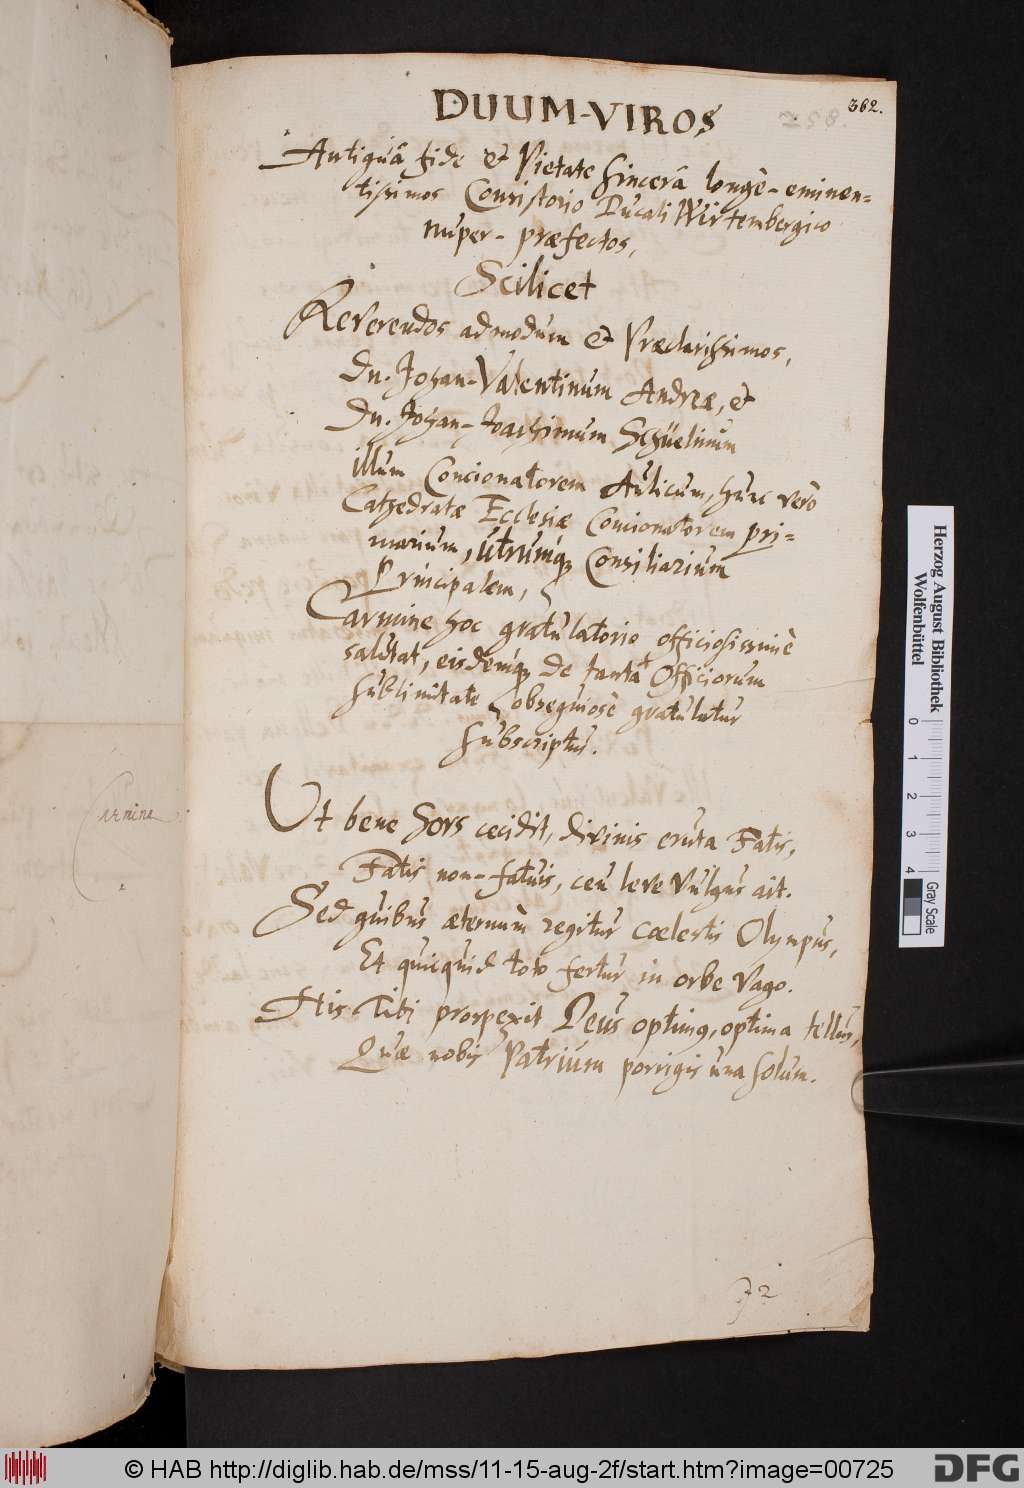 362.
258.
DUUM-VIROS
Antiquâ fide et Pietate sincerâ longè-eminen=
tissimos Consistorio Ducali Wirtembergico
nuper-præfectos,
Scilicet
Reverendos admodum et Præclarissimos,
Dn. Johan-Valentinum Andreæ, et
Dn. Johan-Joachimum Schüelinum
illum Concionatorem Aulicum, hunc verò
Cathedratæ Ecclesiæ Concionatorem pri=
marium, utrumq; Consiliarium
Principalem,
Carmine hoc gratulatorio officiosissimè
salutat, eisdemq; de tantâ Officiorum
sublimitate obsequiosè gratulatur
subscriptus.
Carmine
Ut bene Sors cecidit, divinis eruta Fatis,
Fatis non-fatuis, ceu leve vulgus ait.
Sed quibus æternùm regitur cœlestis Olympus,
Et quicquid toto fertur in orbe vago.
His Tibi prospexit Deus optimus, optima tellus,
Quæ nobis Patrium porrigis una solum.
Herzog August Bibliothek
Wolfenbüttel
0 1 2 3 4
Gray Scale
© HAB http://diglib.hab.de/mss/11-15-aug-2f/start.htm?image=00725
DFG